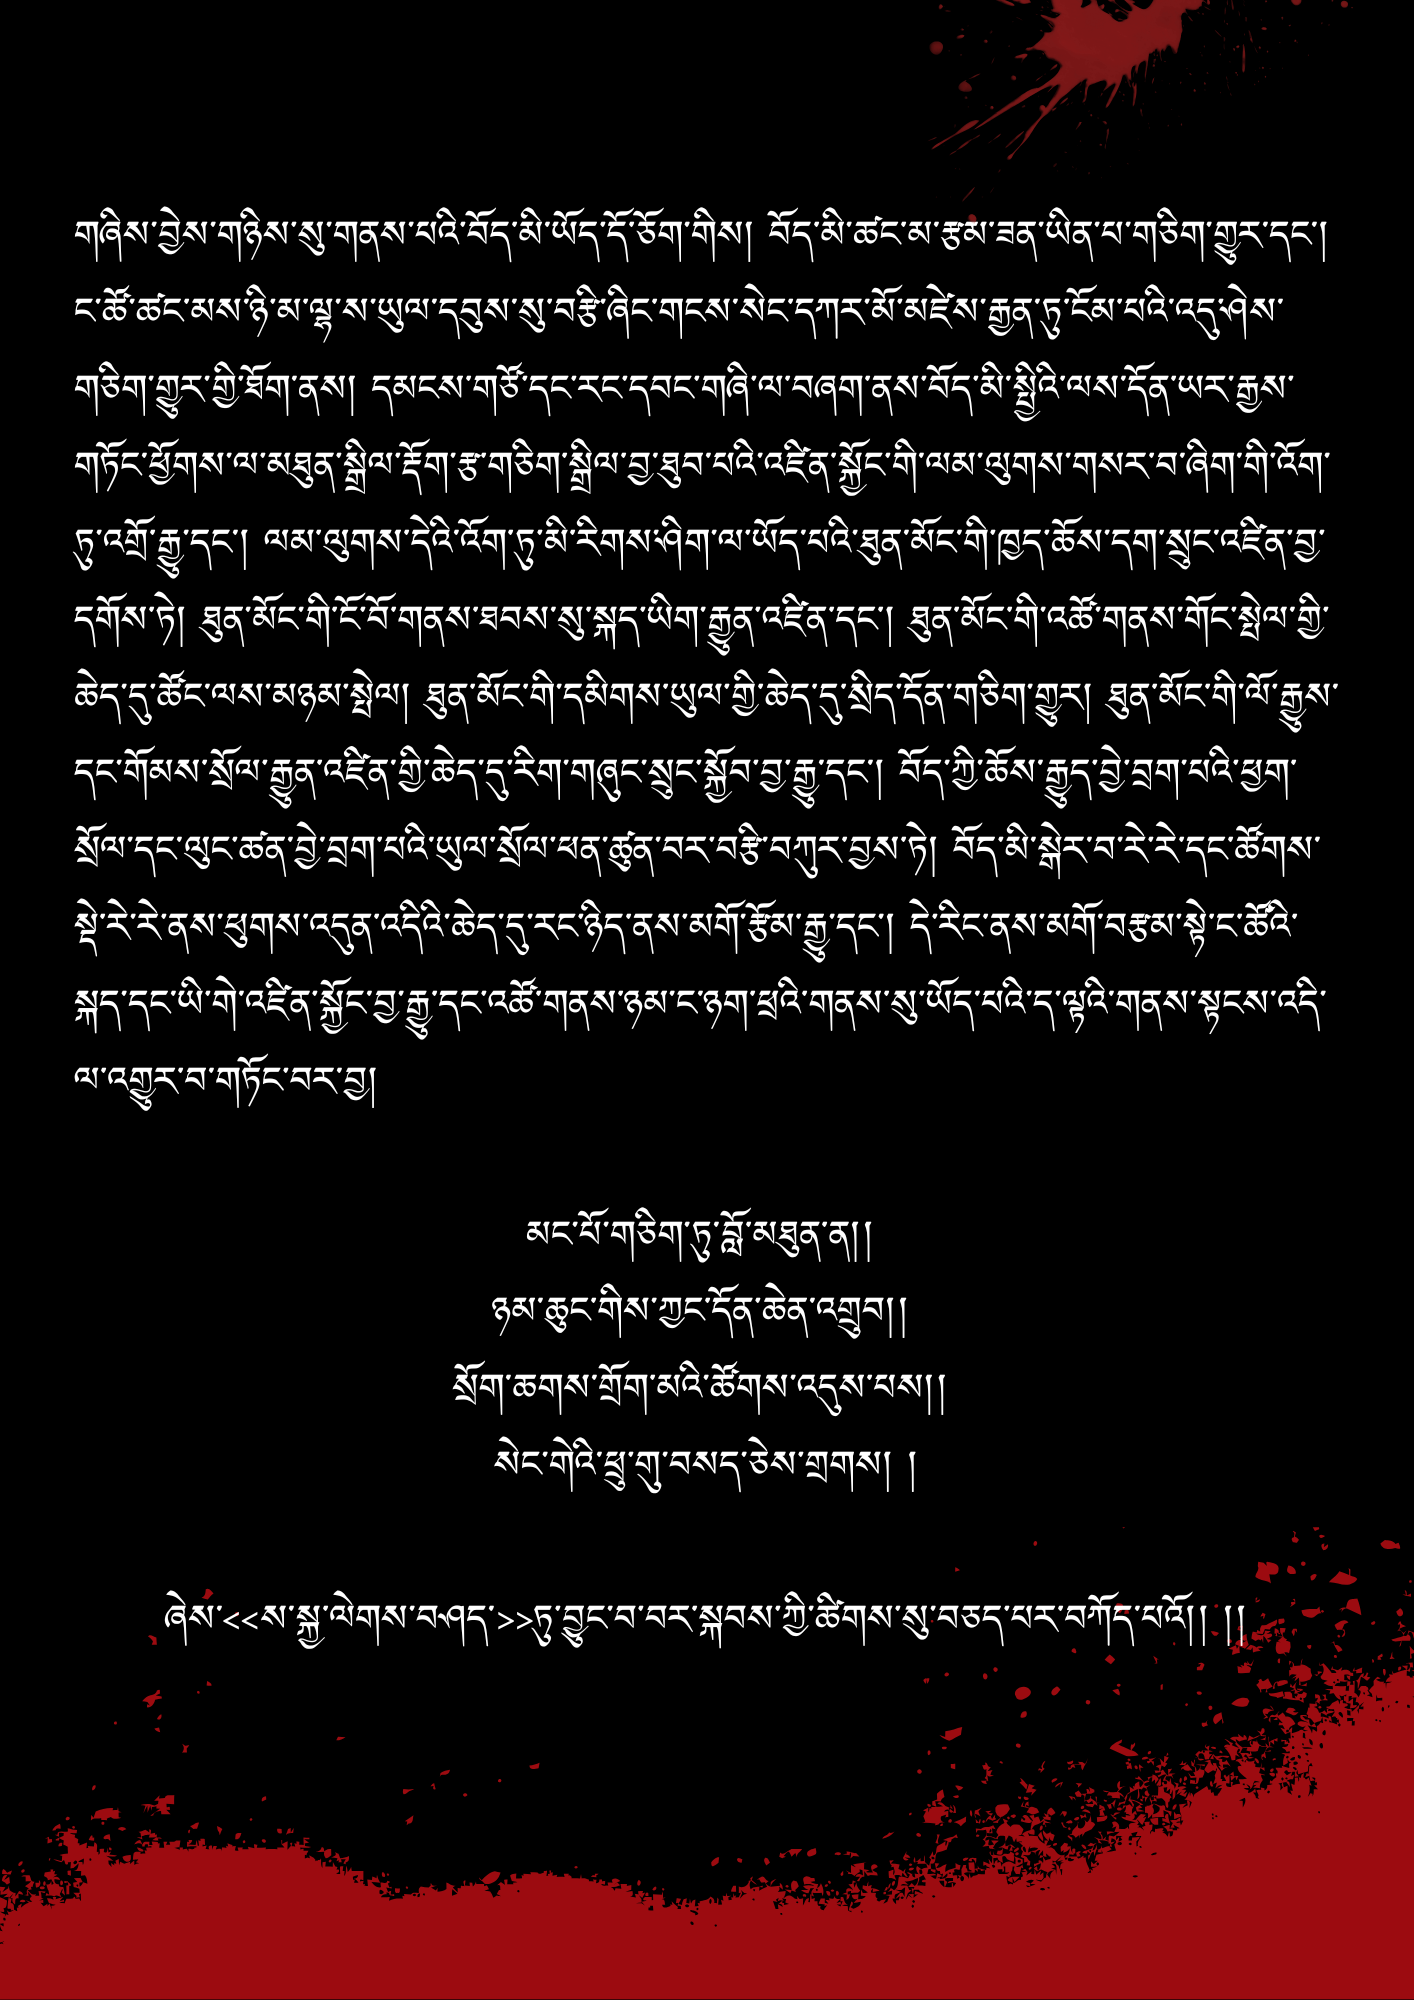 གཞིས་བྱེས་གཉིས་སུ་གནས་པའི་བོད་མི་ཡོད་དོ་ཅོག་གིས། བོད་མི་ཚང་མ་རྩམ་ཟན་ཡིན་པ་གཅིག་གྱུར་དང་།
ང་ཚོ་ཚང་མས་ཉི་མ་ལྷ་ས་ཡུལ་དབུས་སུ་བརྩི་ཞིང་གངས་སེང་དཀར་མོ་མཛེས་རྒྱན་ཏུ་ངོམ་པའི་འདུ་ཤེས་
གཅིག་གྱུར་གྱི་ཐོག་ནས། དམངས་གཙོ་དང་རང་དབང་གཞི་ལ་བཞག་ནས་བོད་མི་སྤྱིའི་ལས་དོན་ཡར་རྒྱས་
གཏོང་ཕྱོགས་ལ་མཐུན་སྒྲིལ་རྡོག་རྩ་གཅིག་སྒྲིལ་བྱ་ཐུབ་པའི་འཛིན་སྐྱོང་གི་ལམ་ལུགས་གསར་བ་ཞིག་གི་འོག་
ཏུ་འགྲོ་རྒྱུ་དང་། ལམ་ལུགས་དེའི་འོག་ཏུ་མི་རིགས་ཤིག་ལ་ཡོད་པའི་ཐུན་མོང་གི་ཁྱད་ཆོས་དག་སྲུང་འཛིན་བྱ་
དགོས་ཏེ། ཐུན་མོང་གི་ངོ་བོ་གནས་ཐབས་སུ་སྐད་ཡིག་རྒྱུན་འཛིན་དང་། ཐུན་མོང་གི་འཚོ་གནས་གོང་སྤེལ་གྱི་
ཆེད་དུ་ཚོང་ལས་མཉམ་སྤེལ། ཐུན་མོང་གི་དམིགས་ཡུལ་གྱི་ཆེད་དུ་སྲིད་དོན་གཅིག་གྱུར། ཐུན་མོང་གི་ལོ་རྒྱུས་
དང་གོམས་སྲོལ་རྒྱུན་འཛིན་གྱི་ཆེད་དུ་རིག་གཞུང་སྲུང་སྐྱོབ་བྱ་རྒྱུ་དང་། བོད་ཀྱི་ཆོས་རྒྱུད་བྱེ་བྲག་པའི་ཕྱག་
སྲོལ་དང་ལུང་ཚན་བྱེ་བྲག་པའི་ཡུལ་སྲོལ་ཕན་ཚུན་བར་བརྩི་བཀུར་བྱས་ཏེ། བོད་མི་སྒེར་བ་རེ་རེ་དང་ཚོགས་
སྡེ་རེ་རེ་ནས་ཕུགས་འདུན་འདིའི་ཆེད་དུ་རང་ཉིད་ནས་མགོ་རྩོམ་རྒྱུ་དང་། དེ་རིང་ནས་མགོ་བརྩམ་སྟེ་ང་ཚོའི་
སྐད་དང་ཡི་གེ་འཛིན་སྐྱོང་བྱ་རྒྱུ་དང་འཚོ་གནས་ཉམ་ང་ཉག་ཕྲའི་གནས་སུ་ཡོད་པའི་ད་ལྟའི་གནས་སྟངས་འདི་
ལ་འགྱུར་བ་གཏོང་བར་བྱ།
མང་པོ་གཅིག་ཏུ་བློ་མཐུན་ན།།
ཉམ་ཆུང་གིས་ཀྱང་དོན་ཆེན་འགྲུབ།།
སྲོག་ཆགས་གྲོག་མའི་ཚོགས་འདུས་པས།།
སེང་གེའི་ཕྲུ་གུ་བསད་ཅེས་གྲགས། །
ཞེས་<<ས་སྐྱ་ལེགས་བཤད་>>ཏུ་བྱུང་བ་བར་སྐབས་ཀྱི་ཚིགས་སུ་བཅད་པར་བཀོད་པའོ།། །།